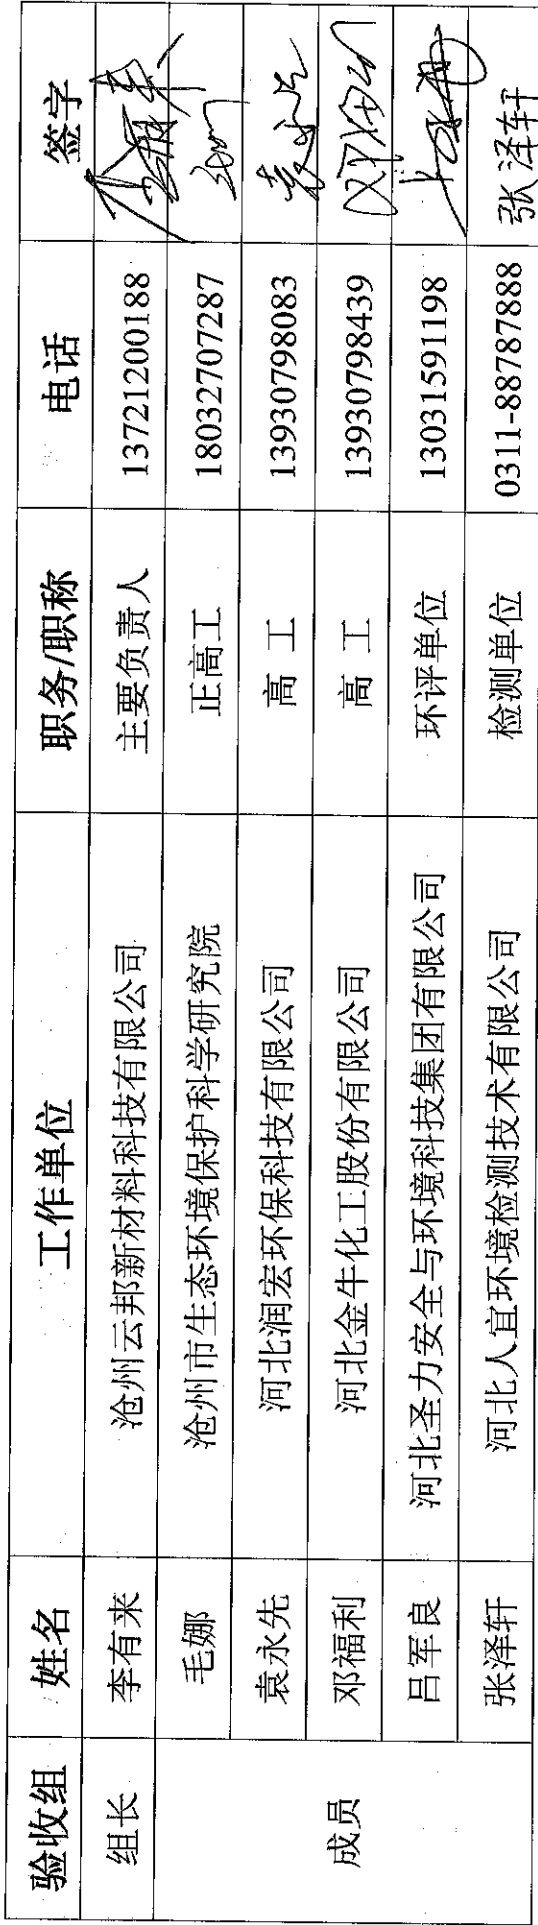 验收组 姓名 工作单位 职务/职称 电话 签字
组长 李有来 沧州云邦新材料科技有限公司 主要负责人 13721200188
成员 毛娜 沧州市生态环境保护科学研究院 正高工 18032707287
袁永先 河北润宏环保科技有限公司 高 工 13930798083 袁永先
邓福利 河北金牛化工股份有限公司 高 工 13930798439
吕军良 河北圣力安全与环境科技集团有限公司 环评单位 13031591198
张泽轩 河北人宜环境检测技术有限公司 检测单位 0311-88787888 张泽轩